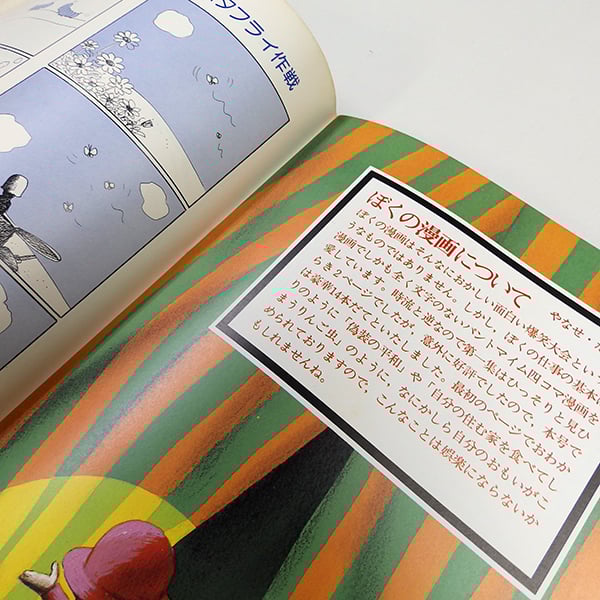 タフライ作戦
ぼくの漫画について
やなせ・
ぼくの漫画はそんなにおかしい面白い爆笑大会という
うなものではありません。しかし、ぼくの仕事の基本は
漫画でしかも全く文字のないパントマイム四コマ漫画を
愛しています。時流と逆なので第一集はひっそりと見ひ
らき2ページでしたが、意外に好評でしたので、本号で
は豪華14本だてといたしました。最初のページでおわか
りのように「偽装の平和」や「自分の住む家を食べてし
まうりんご虫」のように、なにかしら自分のおもいがこ
められておりますので、こんなことは娯楽にならないか
もしれませんね。